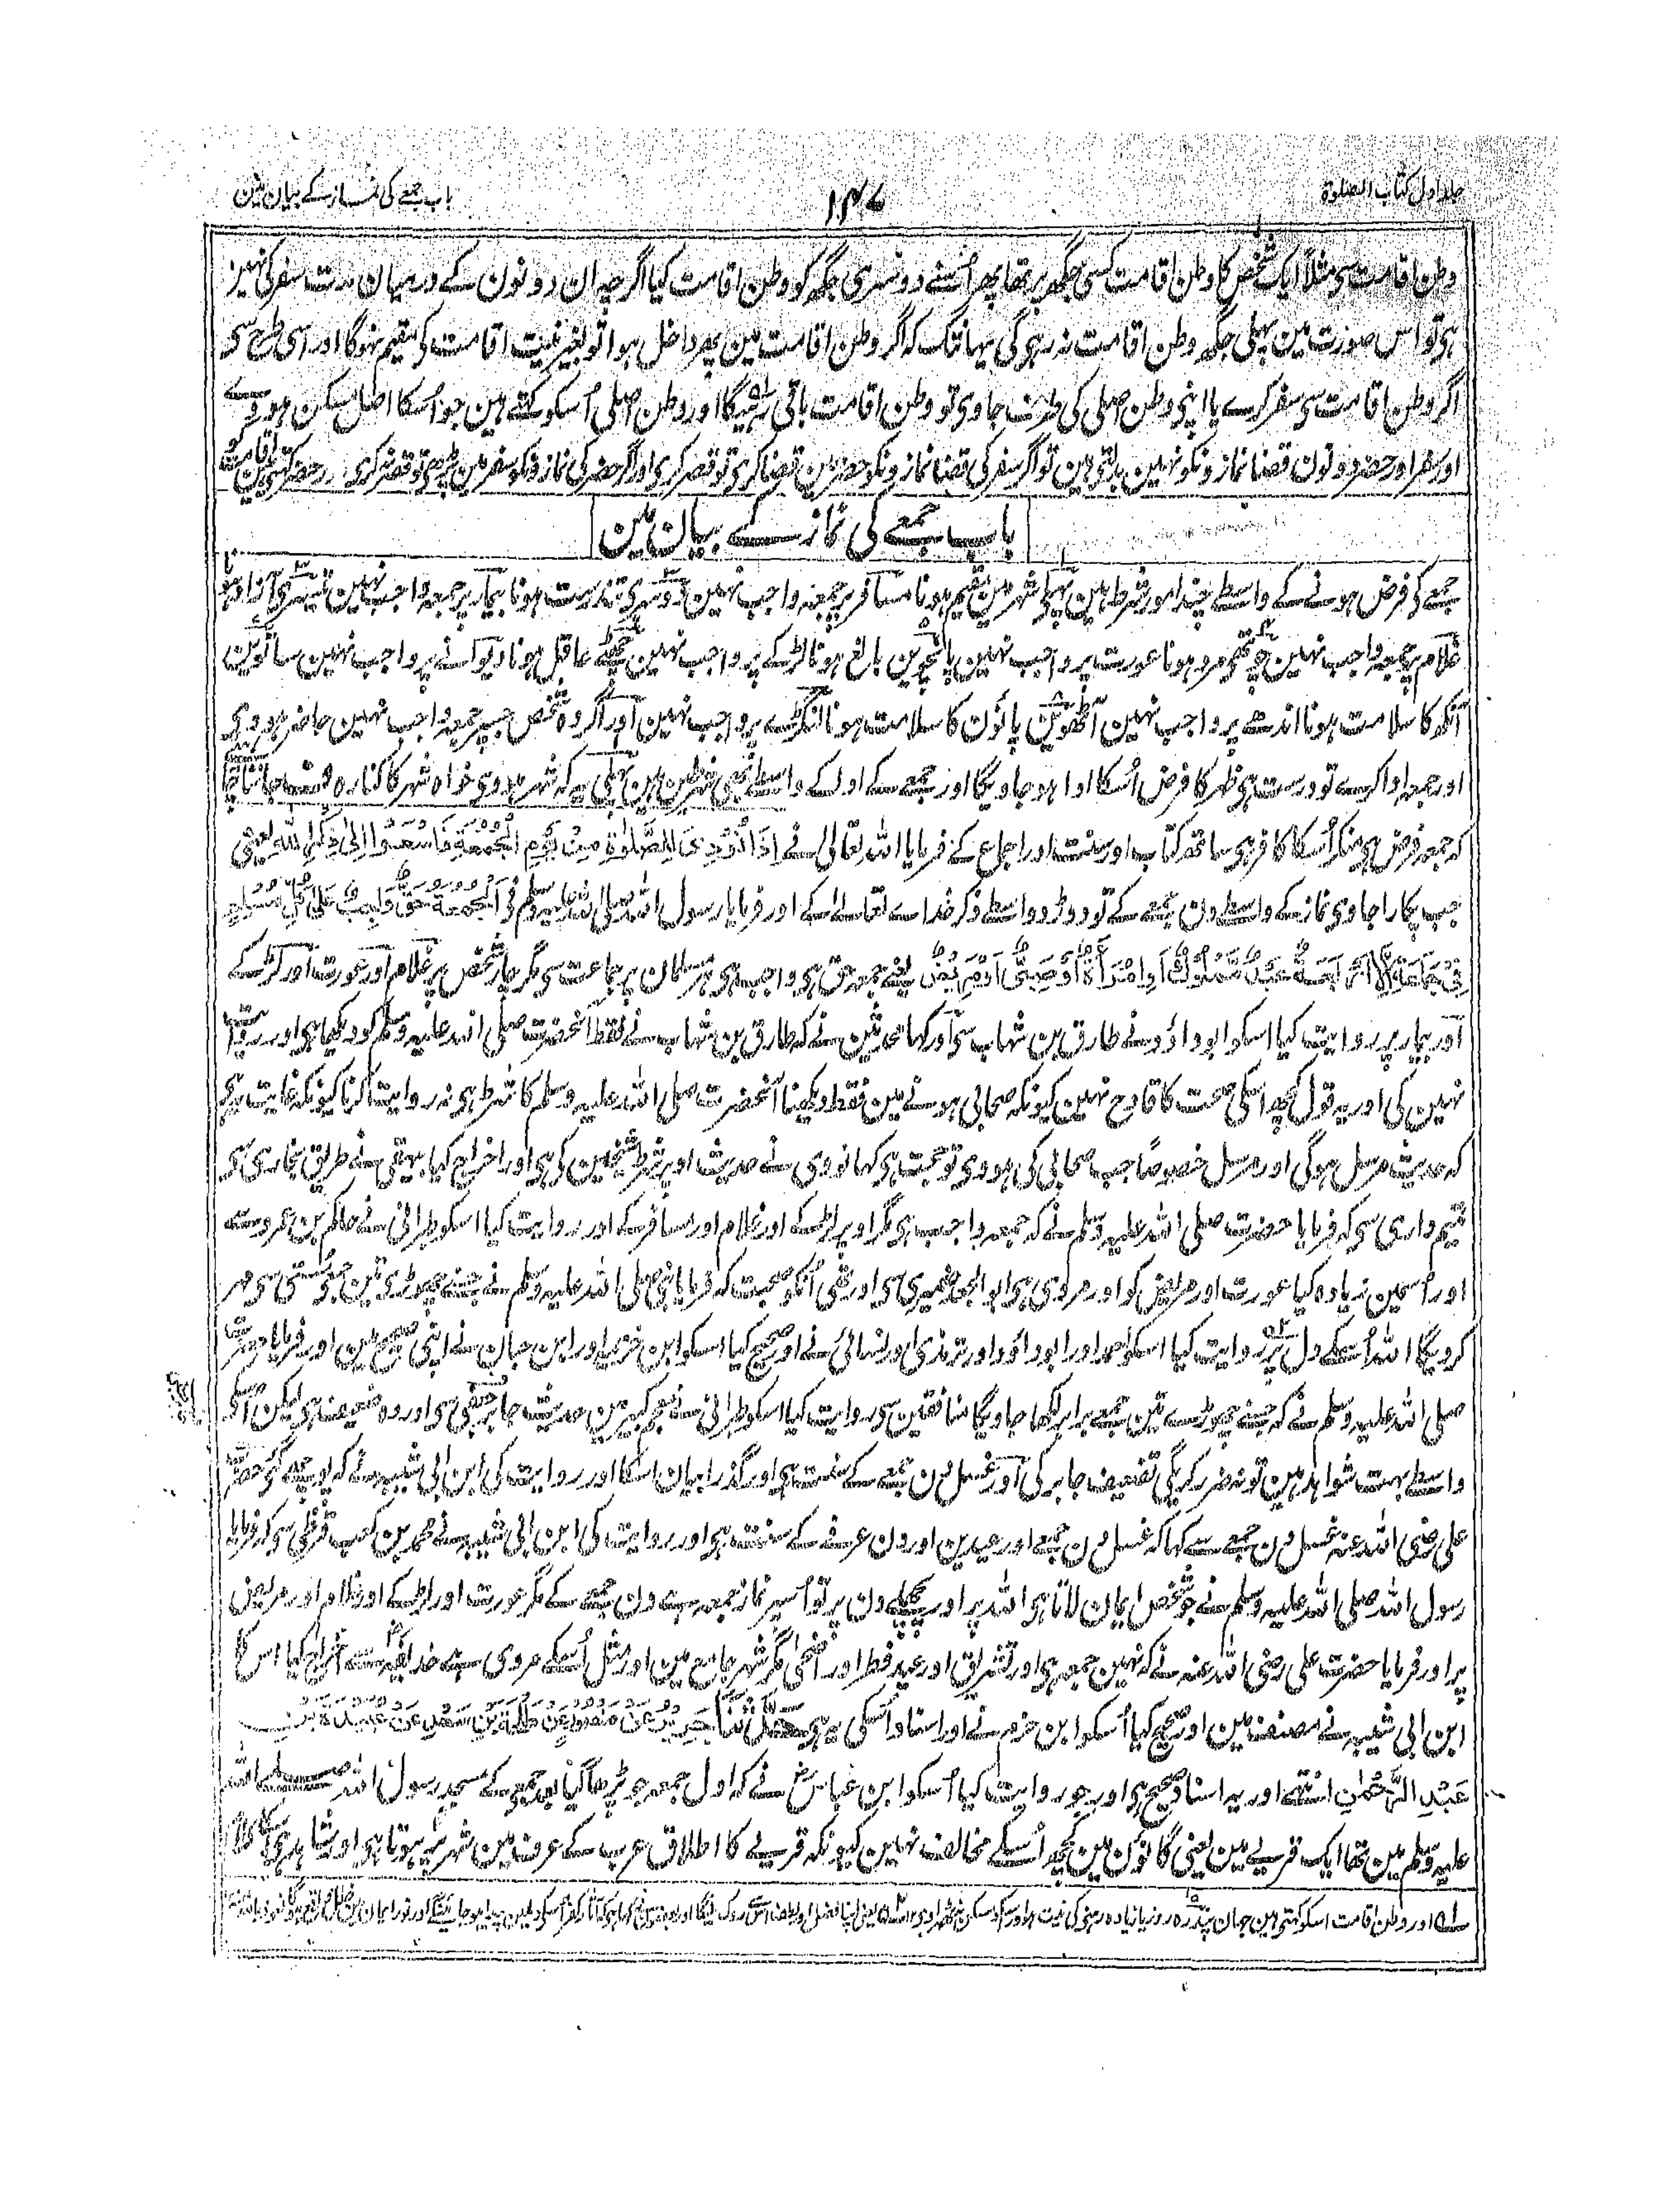 جلد اول کتاب الصلوٰۃ
۱۴۷
باب جمعے کی نماز کے بیان مین
وطن اقامت سی مثلاً ایک شخص کا وطن اقامت کسی جگھ پر تھا پھر اُسنے دوسری جگھ کو وطن اقامت کیا اگرچہ ان دونون کے درمیان مدت سفر کی نہین
ہی تو اس صورت مین پہلی جگھ وطن اقامت نہ رہیگی یہانتک کہ اگر وطن اقامت مین پھر داخل ہوا تو بغیر نیت اقامت کی مقیم نہوگا اور اسی طرح سی
اگر وطن اقامت سی سفر کرے یا اپنی وطن اصلی کی طرف جاوی تو وطن اقامت باقی نرہیگا اور وطن اصلی اُسکو کہتے ہین جو اُسکا اصل مسکن ہووے
اور سفر اور حضر دونون قضا نمازونکو نہین بدلتی ہین تو اگر سفر کی قضا نمازونکو حضر مین قضا کری تو قصر کری اور اگر حضر کی نمازونکو سفر مین پڑھی تو قصر نہ کری حضر کہتی ہین اقامت کو
باب جمعے کی نماز کے بیان مین
جمعے کی فرض ہونے کے واسطے چند امور شرط ہین پہلی شہر مین مقیم ہونا مسافر پر جمعہ واجب نہین دوسری تندرست ہونا بیمار پر جمعہ واجب نہین تیسری آزاد ہونا
غلام پر جمعہ واجب نہین چوتھی مرد ہونا عورت پر واجب نہین پانچوین بالغ ہونا لڑکے پر واجب نہین چھٹے عاقل ہونا دیوانے پر واجب نہین ساتوین
آنکھ کا سلامت ہونا اندھے پر واجب نہین آٹھوین پانؤن کا سلامت ہونا لنگڑے پر واجب نہین اور اگر وہ شخص جسپر جمعہ واجب نہین حاضر ہووی
اور جمعہ ادا کرے تو درست ہی ظہر کا فرض اُسکا ادا ہو جاویگا اور جمعے کے ادا کے واسطے بھی شرطین ہین پہلی یہ کہ شہر ہووی خواہ شہر کا کنارہ ف جاننا چاہیے
کہ جمعہ فرض ہی منکر اُسکا کافر ہی ساتھ کتاب اور سنت اور اجماع کے فرمایا اللہ تعالیٰ نے اِذَا نُوْدِیَ لِلصَّلٰوۃِ مِنْ یَّوْمِ الْجُمُعَۃِ فَاسْعَوْا اِلٰی ذِکْرِ اللہِ یعنی
جب پکارا جاوی نماز کے واسطے دن جمعے کے تو دوڑو واسطے ذکر خداے تعالیٰ کے اور فرمایا رسول اللہ صلی اللہ علیہ وسلم نی اَلْجُمُعَۃُ حَقٌّ وَاجِبٌ عَلٰی کُلِّ مُسْلِمٍ
فِیْ جَمَاعَۃٍ اِلَّا اَرْبَعَۃً عَبْدٌ مَّمْلُوْکٌ اَوِ امْرَأَۃٌ اَوْ صَبِیٌّ اَوْ مَرِیْضٌ یعنے جمعہ حق ہی واجب ہی ہر مسلمان پر جماعت سی مگر چار شخص پر غلام اور عورت اور لڑکے
اور بیمار پر روایت کیا اسکو ابو داؤد نے طارق بن شہاب سی اور کہا محدثین نے کہ طارق بن شہاب نے فقط آنحضرت صلی اللہ علیہ وسلم کو دیکھا ہی اور روایت
نہین کی اور یہ قول کچھ اسکی صحت کا قادح نہین کیونکہ صحابی ہونے مین فقط دیکھنا آنحضرت صلی اللہ علیہ وسلم کا شرط ہی نہ روایت کرنا کیونکہ غایت یہی
کہ حدیث مرسل ہوگی اور مرسل خصوصاً جب صحابی کی ہووی تو حجت ہی کہا نووی نے حدیث اوپر شرط شیخین کی ہی اور اخراج کیا بیہقی نے طریق بخاری سی
تمیم داری سی کہ فرمایا حضرت صلی اللہ علیہ وسلم نے کہ جمعہ واجب ہی مگر اوپر لڑکے اور غلام اور مسافر کے اور روایت کیا اسکو طبرانی نے حاکم بن عمرو سے
اور اسمین زیادہ کیا عورت اور مریض کو اور مروی ہی ابو الجعد ضمیری سی اور تھی اُنکو صحبت کہ فرمایا نبی صلی اللہ علیہ وسلم نے جسنے چھوڑ دی تین جمعی سستی سی مہر
کردیگا اللہ اُسکے دل پر روایت کیا اسکو احمد اور ابو داؤد اور ترمذی اور نسائی نے اور صحیح کیا اسکو ابن خزیمہ اور ابن حبان نے اپنی صحیح مین اور فرمایا حضرت
صلی اللہ علیہ وسلم نے کہ جسنے چھوڑے تین جمعے برابر لکھا جاویگا منافقین سی روایت کیا اسکو طبرانی نے معجم کبیر مین حدیث جابر جعفی سی اور وہ ضعیف ہی لیکن اسکے
واسطے بہت شواہد ہین تو نہ ضرر کریگی تضعیف جابر کی اور غسل دن جمعے کے سنت ہی اور گذرا بیان اسکا اور روایت کی ابن ابی شیبہ نے کہ پوچھے گئے حضرت
علی رضی اللہ عنہ غسل دن جمعے سے کہا کہ غسل دن جمعے اور عیدین اور دن عرفے کے سنت ہی اور روایت کی ابن ابی شیبہ نے محمد بن کعب قرظی سی کہ فرمایا
رسول اللہ صلی اللہ علیہ وسلم نے جو شخص ایمان لاتا ہی اللہ پر اور پچھلے دن پر تو اُسپر نماز جمعہ ہے دن جمعے کے مگر عورت اور لڑکے اور غلام اور مریض
پر اور فرمایا حضرت علی رضی اللہ عنہ نے کہ نہین جمعہ ہی اور تشریق اور عید فطر اور اضحیٰ مگر شہر جامع مین اور مثل اُسکے مروی ہے حذیفہ سے اخراج کیا اس کا
ابن ابی شیبہ نے مصنف مین اور صحیح کیا اُسکو ابن حزم نے اور اسناد اُسکی یہ ہی حَدَّثَنَا جَرِیْرٌ عَنْ مَنْصُوْرٍ عَنْ طَلْحَۃَ بْنِ سَعْدٍ عَنْ عُبَیْدَۃَ بْنِ
عَبْدِ الرَّحْمٰنِ انتہے اور یہ اسناد صحیح ہی اور جو روایت کیا اُسکو ابن عباس رض نے کہ اول جمعہ جو پڑھا گیا بعد جمعے کے مسجد رسول اللہ صلے اللہ
علیہ وسلم مین تھا ایک قریے مین یعنی گانؤن مین کچھ اُسکے مخالف نہین کیونکہ قریے کا اطلاق عرب کے عرف مین شہر پر ہوتا ہی اور شاہد ہی
لہ اور وطن اقامت اسکو کہتی ہین جہان پندرہ روز یا زیادہ رہنی کی نیت ہو اور اسکو مسکن نہ ٹھہرایا ہو